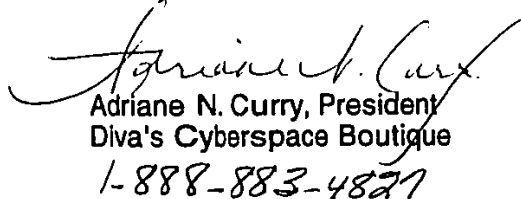 Adriane N. Curry
Adriane N. Curry, President
Diva's Cyberspace Boutique
1-888-883-4827